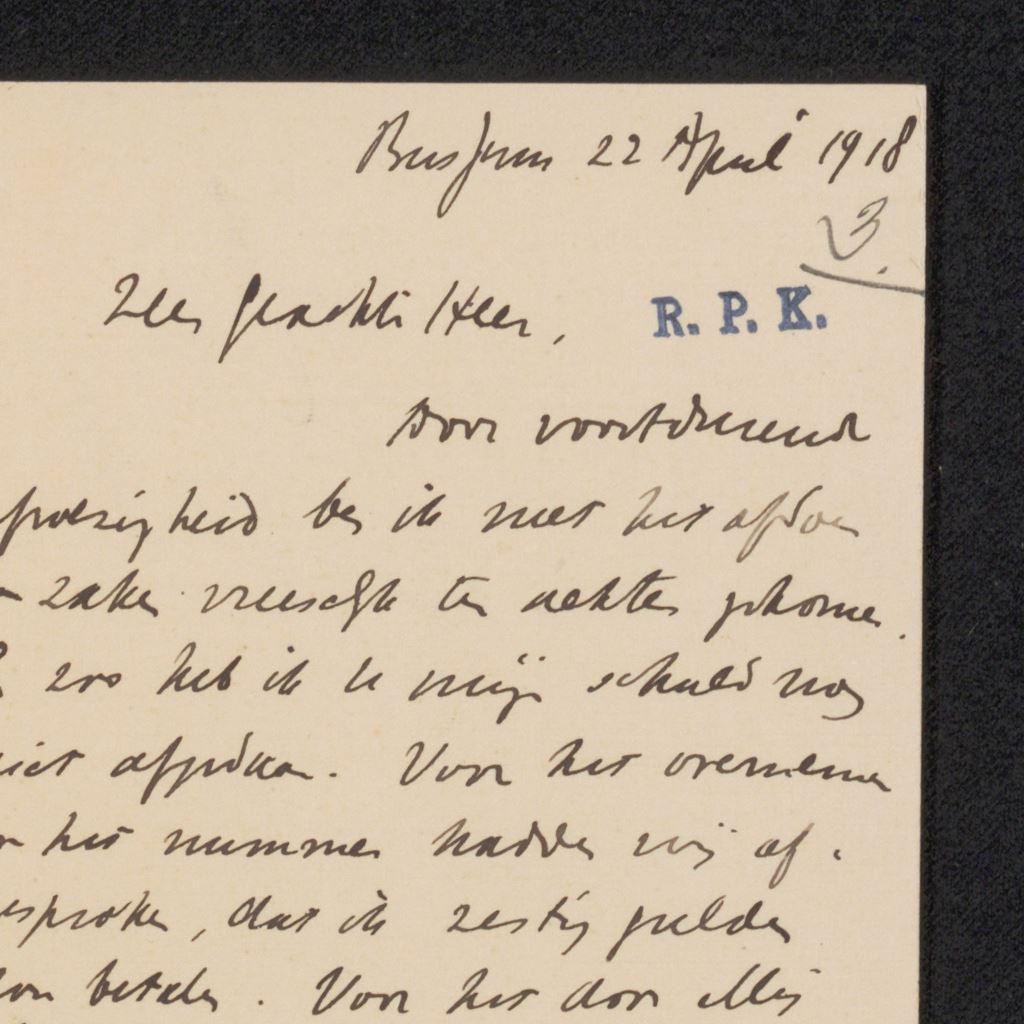 Bussum 22 April 1918
3.
Zeer geachte Heer,
R. P. K.
Door voortdurende
ongesteldheid ben ik met het afdoen
zaken vreeselijk ten achter gekomen.
zoo heb ik U mijn schuld nog
niet afgedaan. Voor het overnemen
het nummer hadden wij af-
gesproken, dat ik zestig gulden
zou betalen. Voor het door